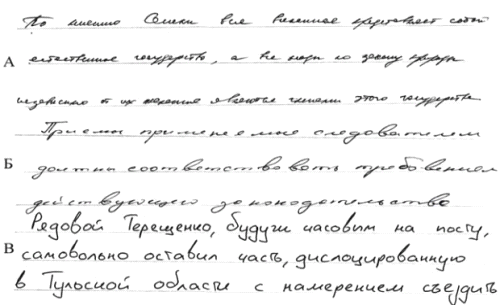 По мнению Сенеки все вселенная представляет собой
А естественное государство, а все люди по закону природы
независимо от их желания являются членами этого государства
Приемы применяемые следователем
Б должны соответствовать требованием
действующего законодательства
Рядовой Терещенко, будучи часовым на посту,
В самовольно оставил часть, дислоцированную
в Тульской области с намерением съездить